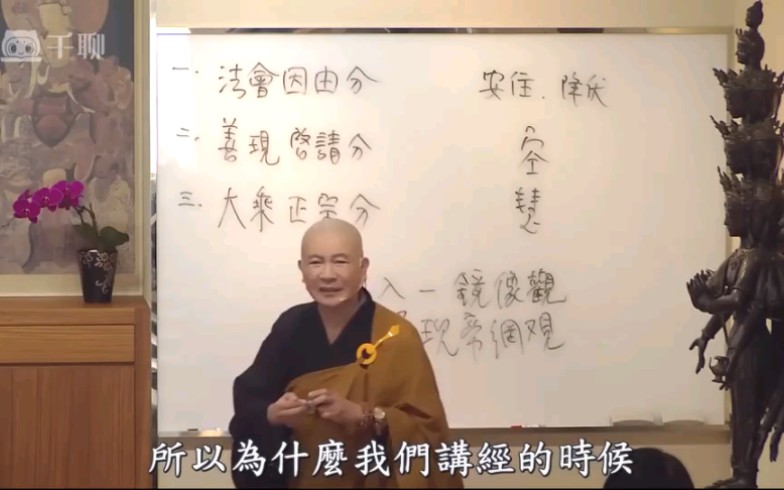 千聊
一. 法會因由分
安住、降伏
二. 善現啓請分
空
三. 大乘正宗分
慧
入一鏡像觀
現帝網观
所以為什麼我們講經的時候